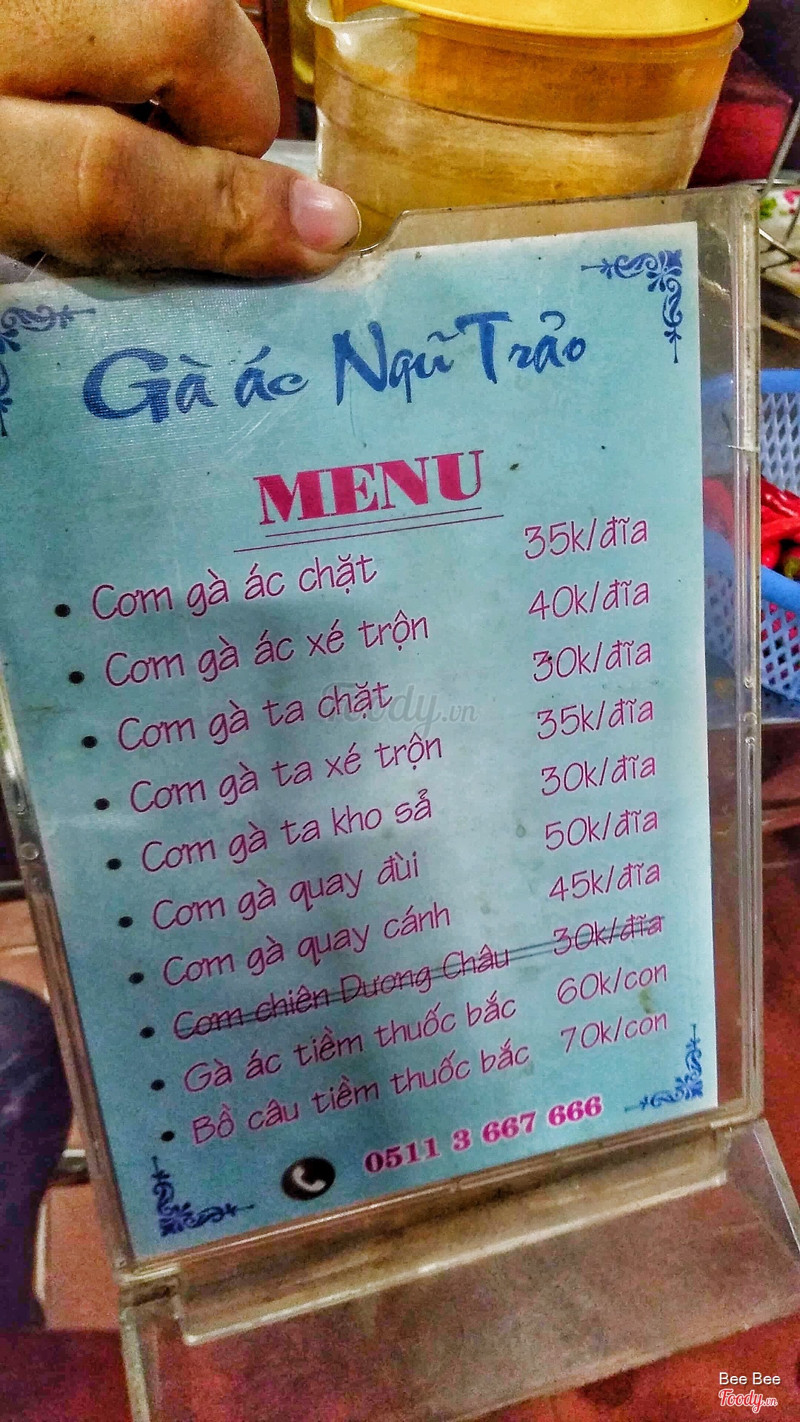 Gà ác Ngũ Trảo
MENU
• Cơm gà ác chặt 35k/đĩa
• Cơm gà ác xé trộn 40k/đĩa
• Cơm gà ta chặt 30k/đĩa
• Cơm gà ta xé trộn 35k/đĩa
• Cơm gà ta kho sả 30k/đĩa
• Cơm gà quay đùi 50k/đĩa
• Cơm gà quay cánh 45k/đĩa
• Cơm chiên Dương Châu 30k/đĩa
• Gà ác tiềm thuốc bắc 60k/con
• Bồ câu tiềm thuốc bắc 70k/con
0511 3 667 666
Foody.vn
Bee Bee
Foody.vn